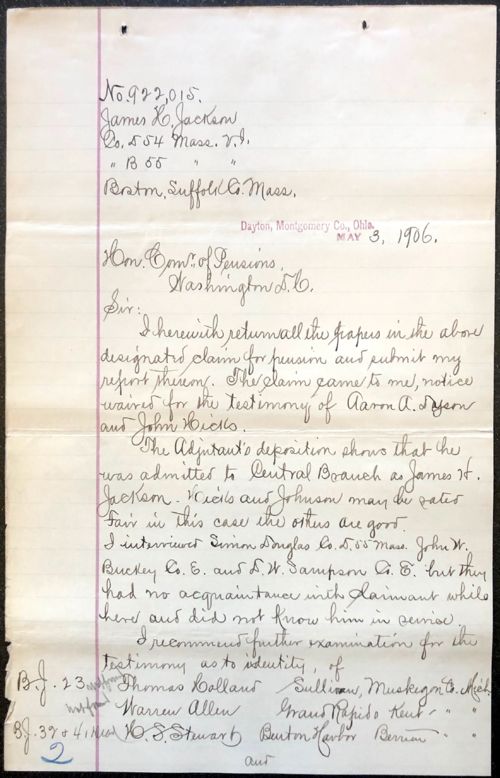 No. 922,015.
James H. Jackson
Co. D 54 Mass. V.I.
" B 55 " "
Boston, Suffolk Co. Mass.
Dayton, Montgomery Co., Ohio.
MAY 3, 1906.
Hon. Com'r. of Pensions,
Washington D.C.
Sir:
I herewith return all the papers in the above
designated claim for pension and submit my
report thereon. The claim came to me, notice
waived for the testimony of Aaron A. Dyson
and John Hicks.
The Adjutant's deposition shows that he
was admitted to Central Branch as James H.
Jackson. Hicks and Johnson may be rated
Fair in this case the others are good.
I interviewed Simon Douglas Co. D, 55 Mass. John W.
Buckey Co. E. and D. W. Sampson Co. E. but they
had no acquaintance with claimant while
here and did not know him in service.
I recommend further examination for the
testimony as to identity, of
B.J. 23 not found Thomas Holland Sullivan, Muskegon Co. Mich.
not found Warren Allen Grand Rapids Kent " "
B.J. 39 & 41 H. S. Stewart Benton Harbor Berrien " "
2
and